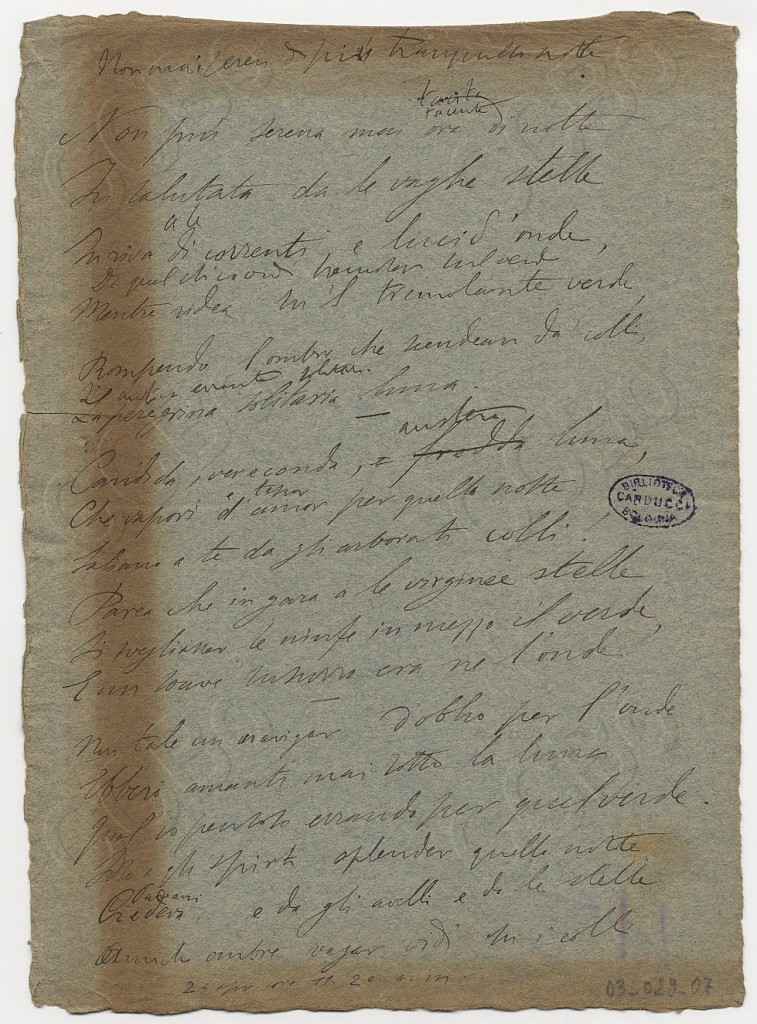 Non mai seren di più tranquilla notte
tacita
tacente
Non più serena mai ora di notte
Fu salutata da le vaghe stelle
a le
In riva di correnti e lucid'onde,
Di quel che
tremolar sul verde
Mentre ridea su 'l tremolante verde,
Rompendo l'ombre che scendean da' colli,
L'antica errante
La peregrina solitaria luna.
austera
Candida, vereconda, e fredda luna,
tepor
Che vapori d'amor per quella notte
Saliano a te da gli arborati colli!
Parea che in gara a le virginee stelle
Si svegliasser le ninfe in mezzo il verde,
E un soave susurro era ne l'onde
Non tale un navigar d'oblio per l'onde
Ebbero amanti mai sotto la luna
Qual io pe'l verde errando per quel verde.
Ma a gli spirti splender quella notte
Pareami
Credevi, e da gli avelli e da le stelle
Amiche ombre vagar vidi su i colli
BIBLIOTECA
CARDUCCI
BOLOGNA
apr. ore 11. 20 a. m.
03-029-07